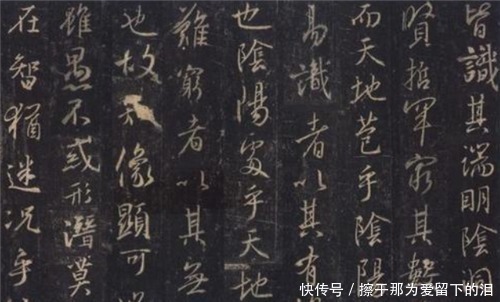 皆識其端明陰洞
賢哲罕窮其數
而天地苞乎陰陽
易識者以其有
也陰陽處乎天地
難窮者以其無
也故像顯可
雖愚不惑形潛莫
在智猶迷況乎
快传号 / 擦于那为爱留下的泪